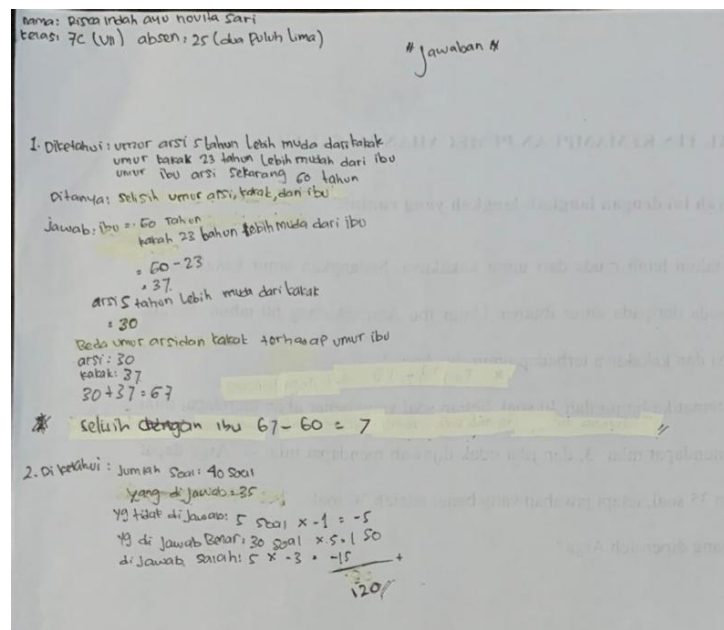 nama: Risca indah ayu novita sari
kelas: 7C (VII) absen: 25 (dua puluh lima)
" Jawaban "
1. Diketahui: umur arsi 5 tahun Lebih muda dari kakak
umur kakak 23 tahun Lebih mudah dari ibu
umur ibu arsi sekarang 60 tahun
Ditanya: selisih umur arsi, kakak, dan ibu
Jawab: ibu = 60 Tahun
kakak 23 tahun lebih muda dari ibu
= 60 - 23
= 37
arsi 5 tahun Lebih muda dari kakak
= 30
Beda umur arsi dan kakak terhadap umur ibu
arsi: 30
kakak: 37
30 + 37 = 67
selisih dengan ibu 67 - 60 = 7
2. Diketahui: Jumlah Soal: 40 soal
yang dijawab = 35
yg tidak di jawab: 5 Soal x -1 = -5
yg di jawab Benar: 30 Soal x 5 = 150
di jawab salah: 5 x -3 = -15
+
120